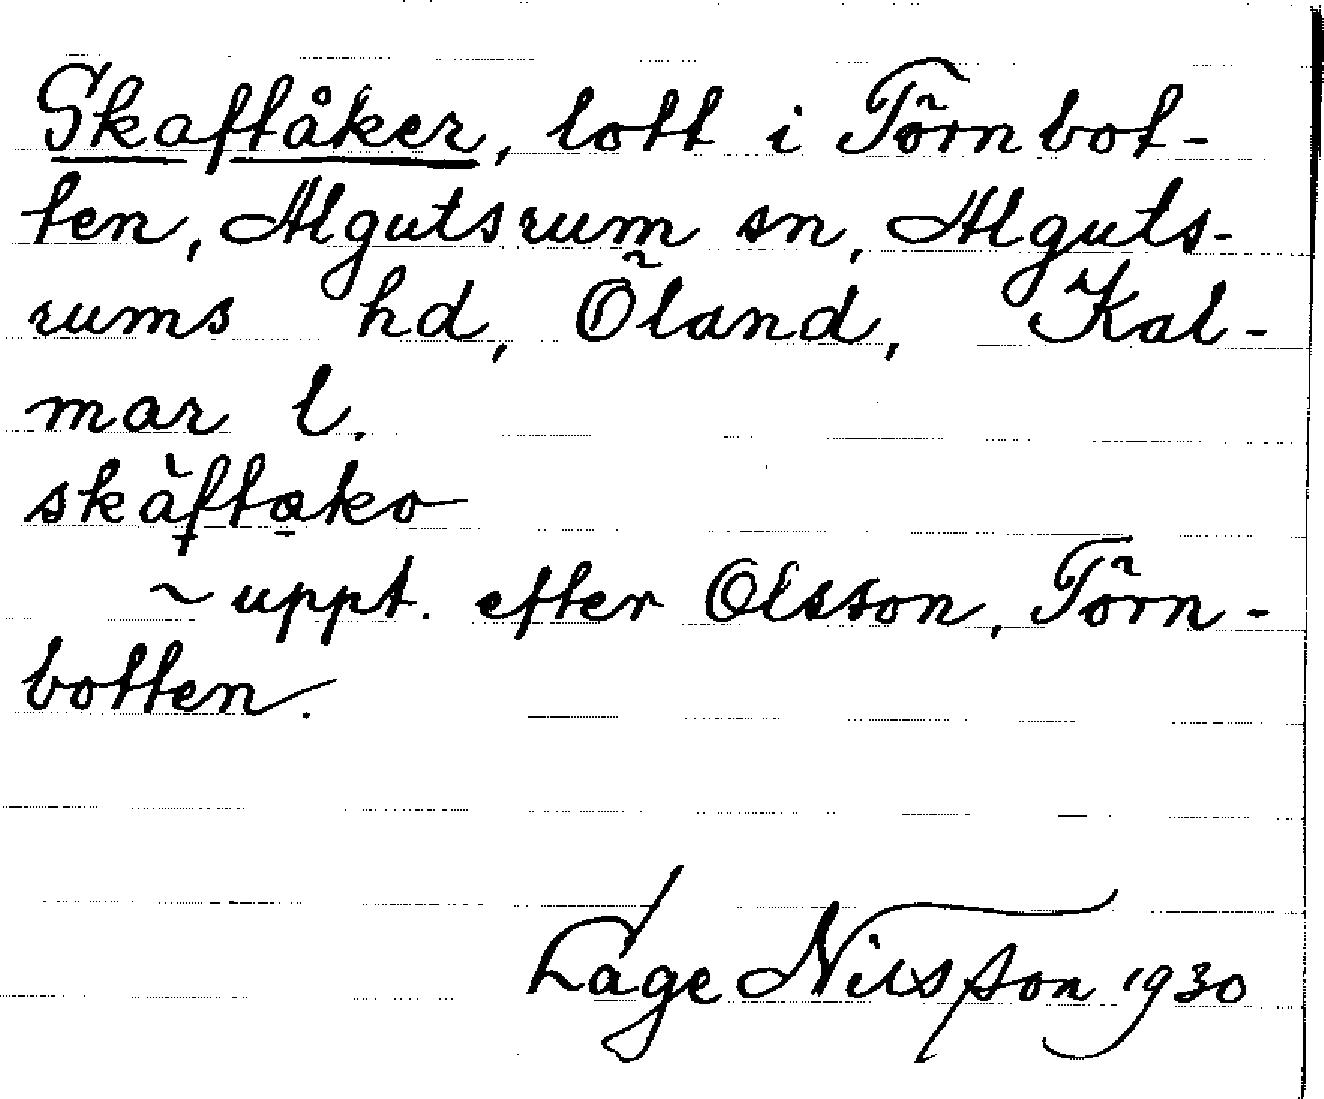 Skaftåker, lott i Törnbot-
ten, Algutsrum sn, Alguts-
rums hd, Öland, Kal-
mar l.
skàftako
~ uppt. efter Olsson, Törn-
botten.
Låge Nilsson 1930